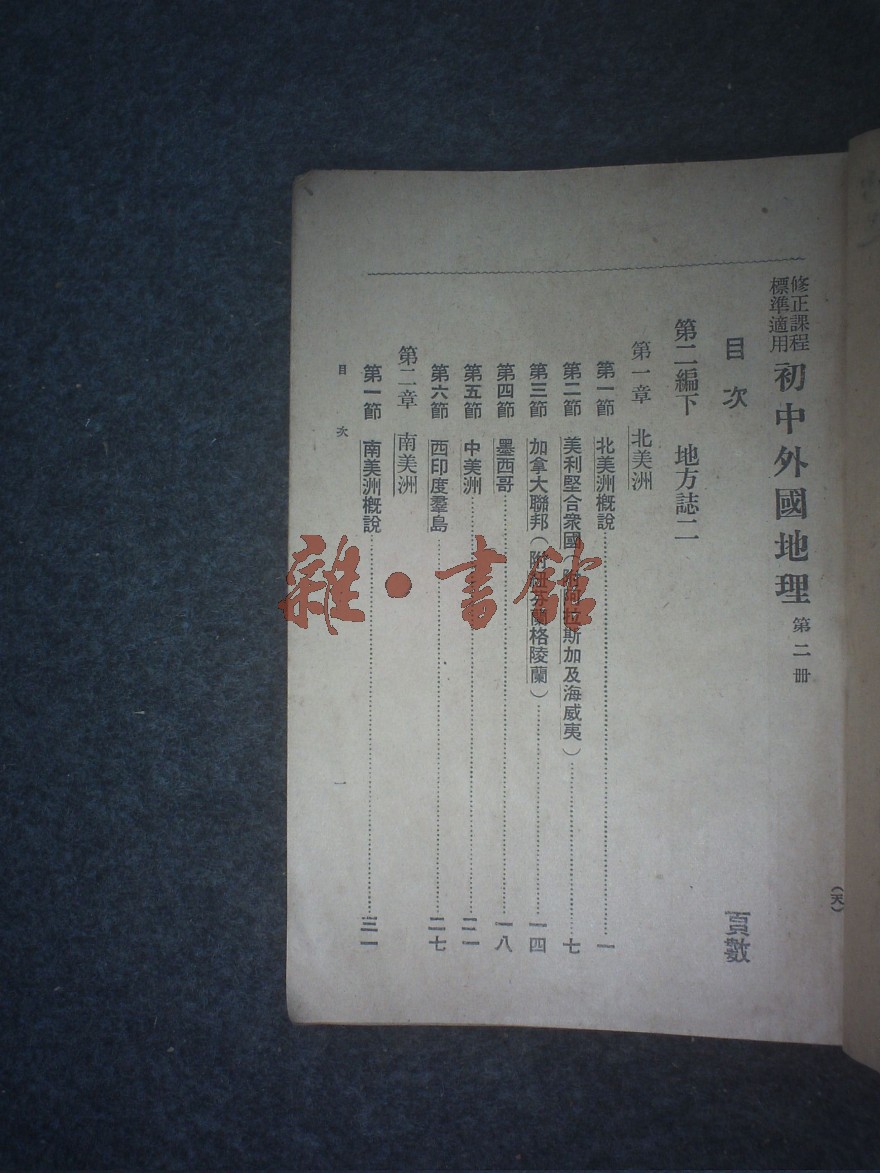 修正課程
標準適用
初中外國地理 第二冊
目次
頁數
第二編下 地方誌二
第一章 北美洲
第一節 北美洲概說 一
第二節 美利堅合衆國(附阿拉斯加及海威夷) 七
第三節 加拿大聯邦(附紐芬蘭格陵蘭) 一四
第四節 墨西哥 一八
第五節 中美洲 二一
第六節 西印度羣島 二七
第二章 南美洲
第一節 南美洲概說 三一
目次 一
(天)
雜·書館